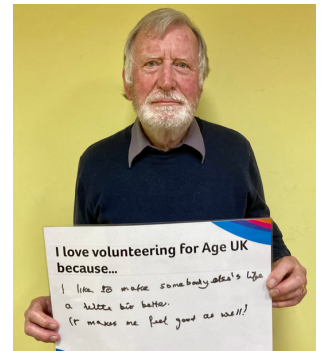 I love volunteering for Age UK
because...
I like to make somebody else's life
a little bit better.
It makes me feel good as well!